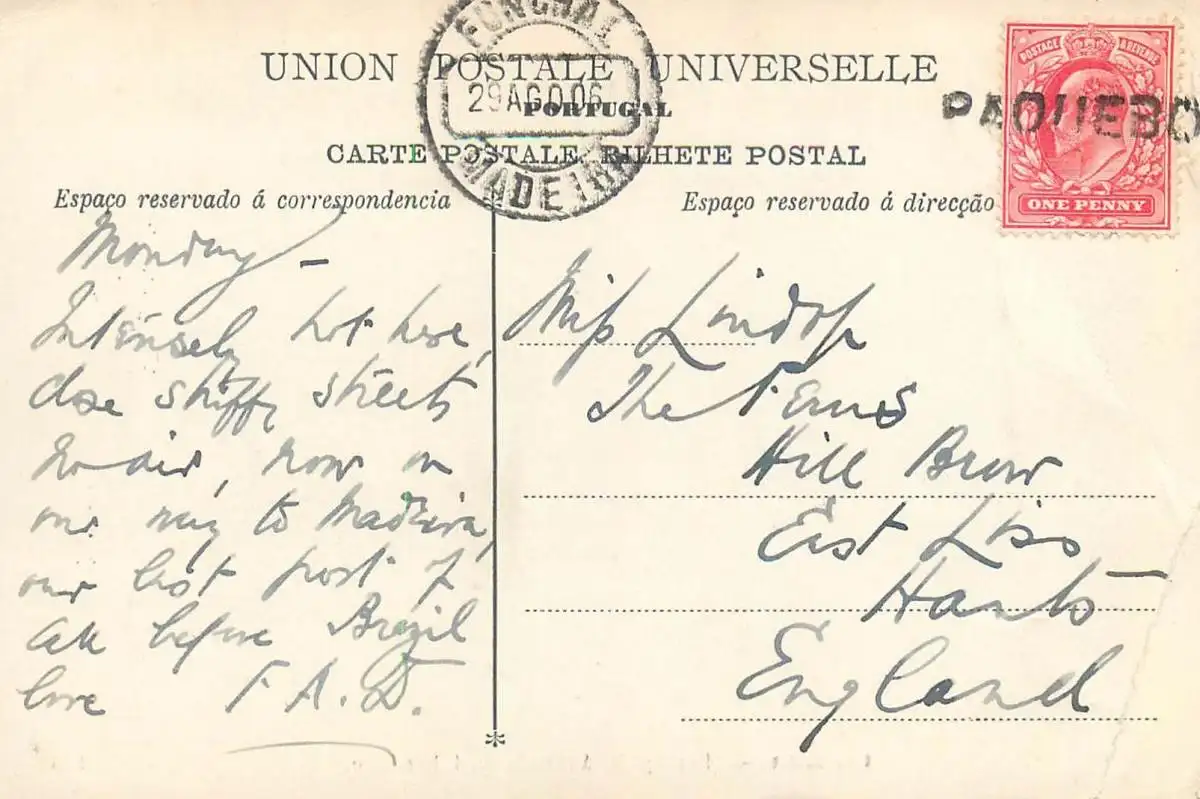 UNION POSTALE UNIVERSELLE
PORTUGAL
CARTE POSTALE. BILHETE POSTAL
FUNCHAL
29AGO.06
MADEIRA
POSTAGE & REVENUE
ONE PENNY
PAQUEBO
Espaço reservado á correspondencia
Monday –
Intensely hot here,
close stuffy streets
no air, now on
our way to Madeira,
our last port of
call before Brazil
love F. A. D.
Espaço reservado á direcção
Miss Lindop
The Ferns
Hill Brow
East Liss
Hants
England